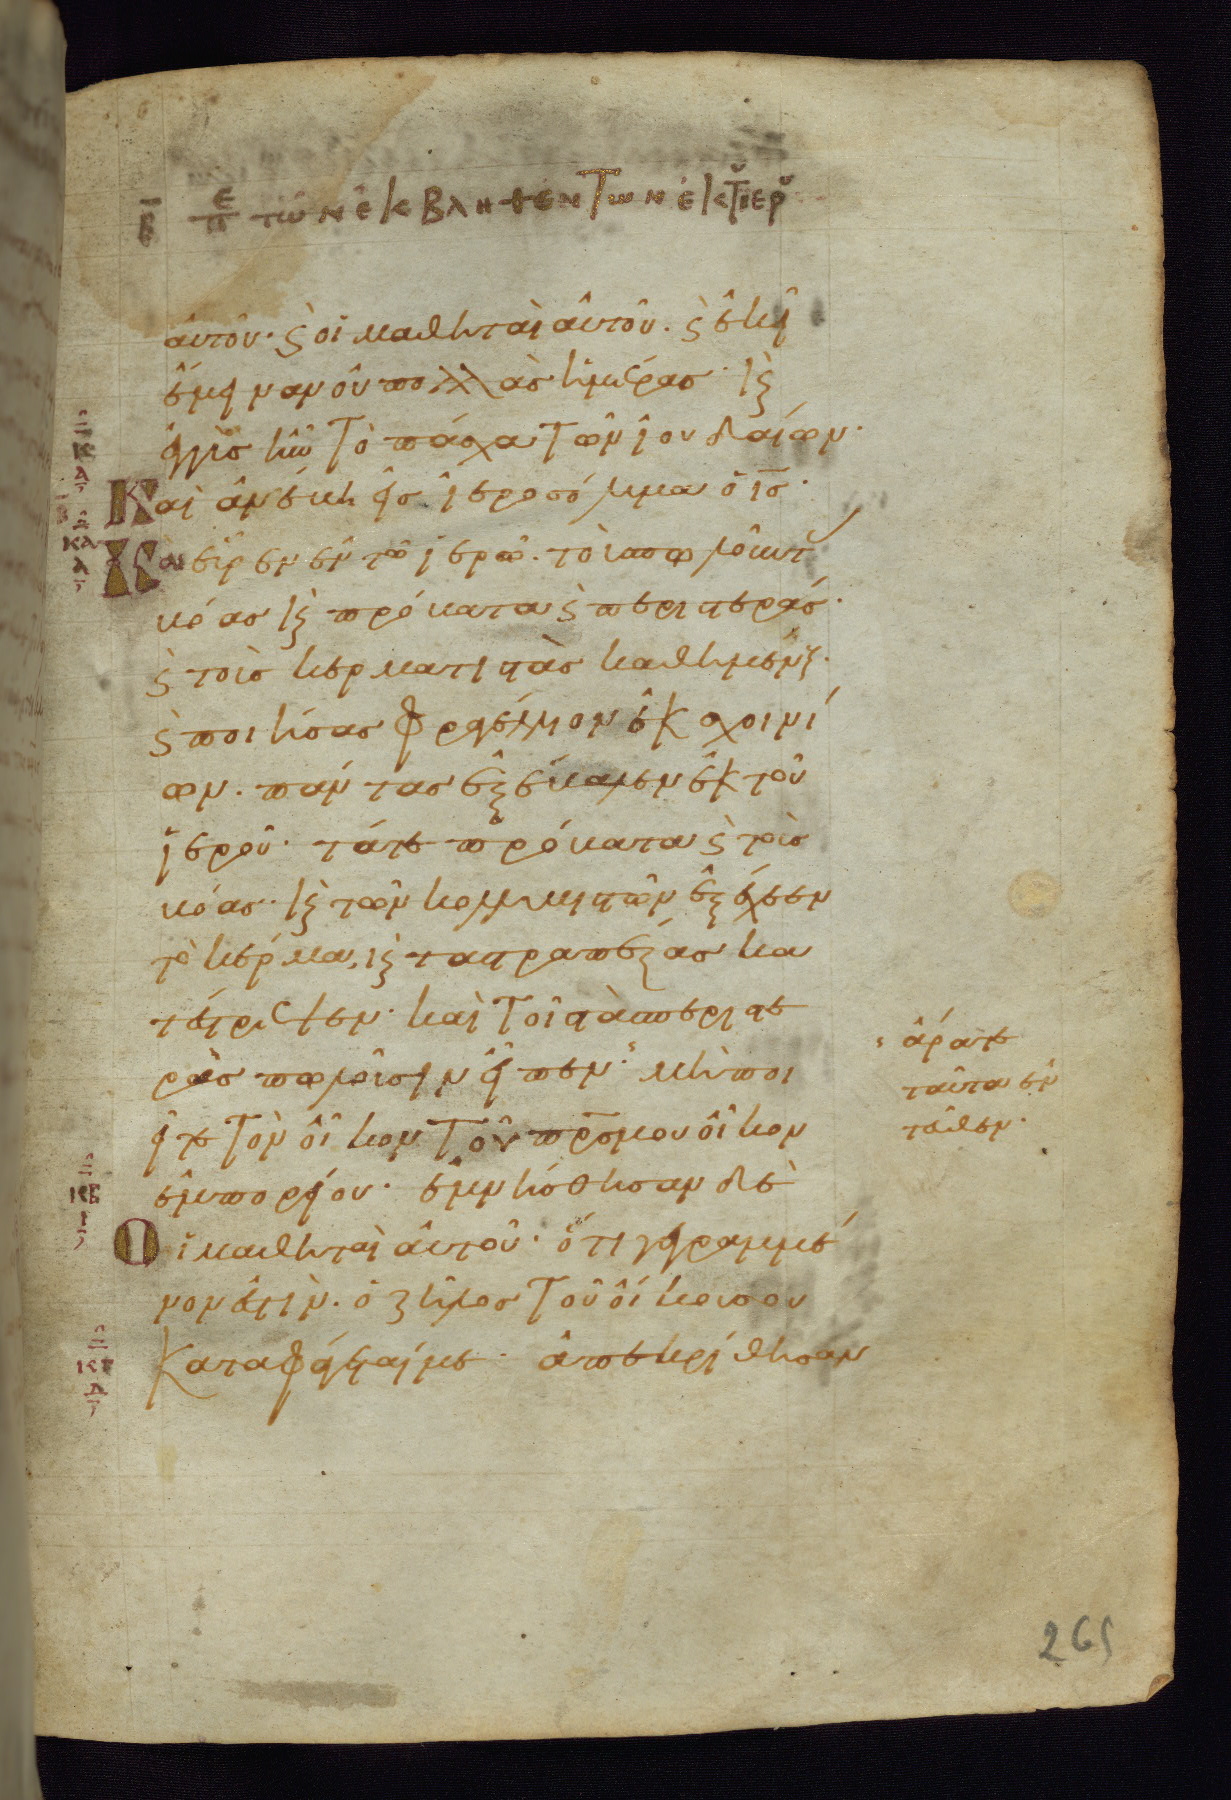 β̅ ε̅π τῶν ἐκβληθέντων ἐκ τ(οῦ) ἱερ(οῦ)
αὐτοῦ· ϛ̀ οἱ μαθηταὶ αὐτοῦ. ϛ̀ ἐκεῖ
ἔμειναν οὐ πολλὰς ἡμέρας· κ(αὶ)
ἐγγὺς ἦν τὸ πάσχα τῶν ἰουδαίων·
Καὶ ἀνέβη εἰς ἱεροσόλυμα ὁ ι̅ς̅·
Καὶ εὗρεν ἐν τῶ ἱερῶ. τοὺς πωλοῦντ(ας)
βόας κ(αὶ) πρόβατα ϛ̀ περιστεράς·
ϛ̀ τοὺς κερματιστὰς καθημέν(ους)·
ϛ̀ ποιήσας φραγέλλιον ἐκ σχοινί
ων. πάντας ἐξέβαλεν ἐκ τοῦ
ἱεροῦ· τά τε πρόβατα ϛ̀ τοὺς
βόας· κ(αὶ) τῶν κολλυβιστῶν ἐξέχεεν
τὸ κέρμα, κ(αὶ) τὰς τραπέζας κα
τέστρεψεν· καὶ τοῖς τὰς περιστε
ρὰς πωλοῦσιν εἶπεν· μὴ ποι
εῖτε τὸν οἶκον τοῦ π̅ρ̅ς̅ μου οἶκον
ἐμπορίου· ἐμνήσθησαν δὲ
Οἱ μαθηταὶ αὐτοῦ· ὅτι γεγραμμέ
νον ἐστὶν. ὁ ζῆλος τοῦ οἴκου σου
καταφάγεταί με· ἀπεκρίθησαν
ἄρατε
ταῦτα ἐν
τεῦθεν·
κ
δ
κα
α
κβ
ι
κγ
δ
265